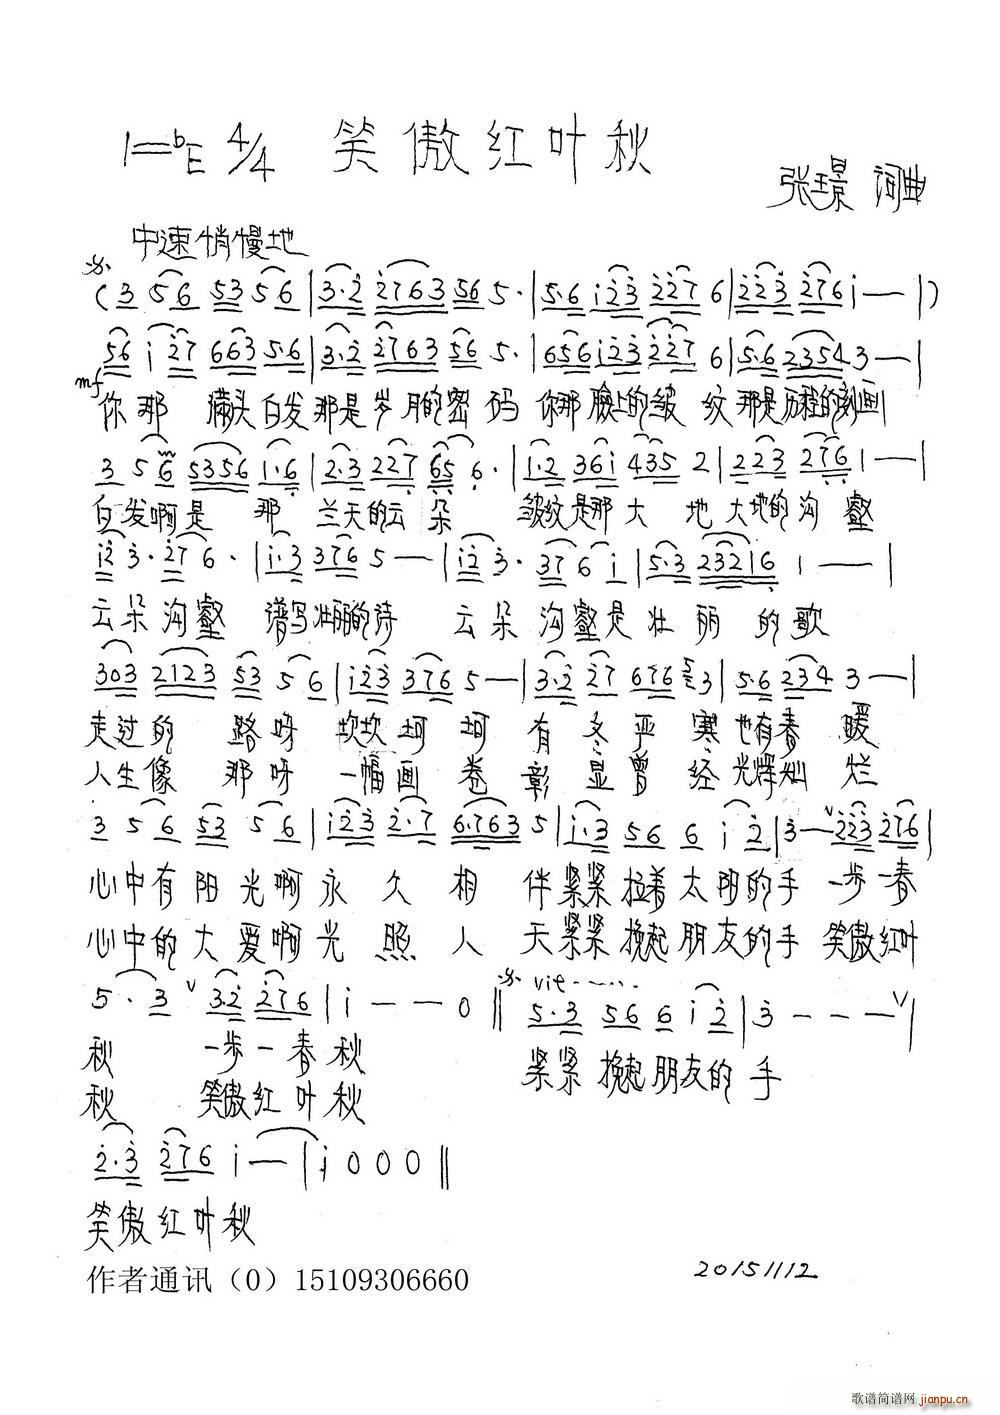 1=bE 4/4 笑傲红叶秋
张璟 词曲
中速悄慢地
(3 56 53 56 | 3·2 2763 56 5· | 5·6 i23 227 6 | 223 276 i — — | )
56 i 27 663 5·6 | 3·2 2763 56 5· | 656 i23 227 6 | 5·6 2354 3 — — |
mf 你那 满头白发那是岁月的密码 你那脸上的皱纹那是历程的刻画
3 5 6 5356 1·6 | 2·3 227 65 6· | 1·2 36i 435 2 | 223 276 1 — — |
白发啊是 那 兰天的云朵 皱纹是那大 地大地的沟壑
i2 3· 27 6· | i·3 376 5 — — | i2 3· 37 6 i | 5·3 23216 1 — — |
云朵沟壑 谱写壮丽的诗 云朵沟壑是壮丽的歌
303 2123 53 5 6 | i23 376 5 — — | 3·2 27 676 53 | 5·6 234 3 — — |
走过的 路呀 坎坎坷坷 有冬严寒也有春暖
人生像 那呀 一幅画卷 彰显曾经光辉灿烂
3 5 6 53 5 6 | i23 2·7 6·763 5 | i·3 56 6 i 2 | 3 — v 223 276 |
心中有阳光啊永久相 伴紧紧拉着太阳的手 一步一春
心中的大爱啊光照人 天紧紧挽起朋友的手 笑傲红叶
5 · 3 v 3·2 276 | i — — — 0 ‖ vit······ 5·3 56 6 i 2 | 3 — — — v |
秋 一步一春秋 紧紧挽起朋友的手
秋 笑傲红叶秋
2·3 276 i — — | i 0 0 0 ‖
笑傲红叶秋
作者通讯（0）15109306660
20151112
歌谱简谱网 jianpu.cn